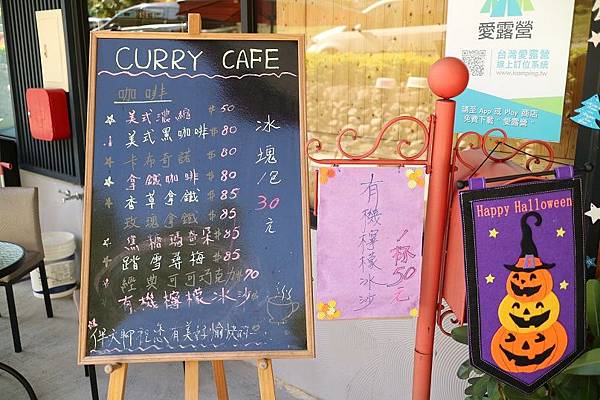 CURRY CAFE
咖啡
美式濃縮 $50
美式黑咖啡 $80
卡布奇諾 $80
拿鐵咖啡 $80
香草拿鐵 $85
玫瑰拿鐵 $85
焦糖瑪奇朵 $85
踏雪尋梅 $85
經典可可巧克力 $70
有機檸檬冰沙
伴大腳祝您有美好愉快的
冰塊包30元
有機檸檬冰沙
1杯50元
愛露營
台灣愛露營
線上訂位系統
www.icamping.tw
請至 App 或 Play 商店
免費下載"愛露營"
Happy Halloween